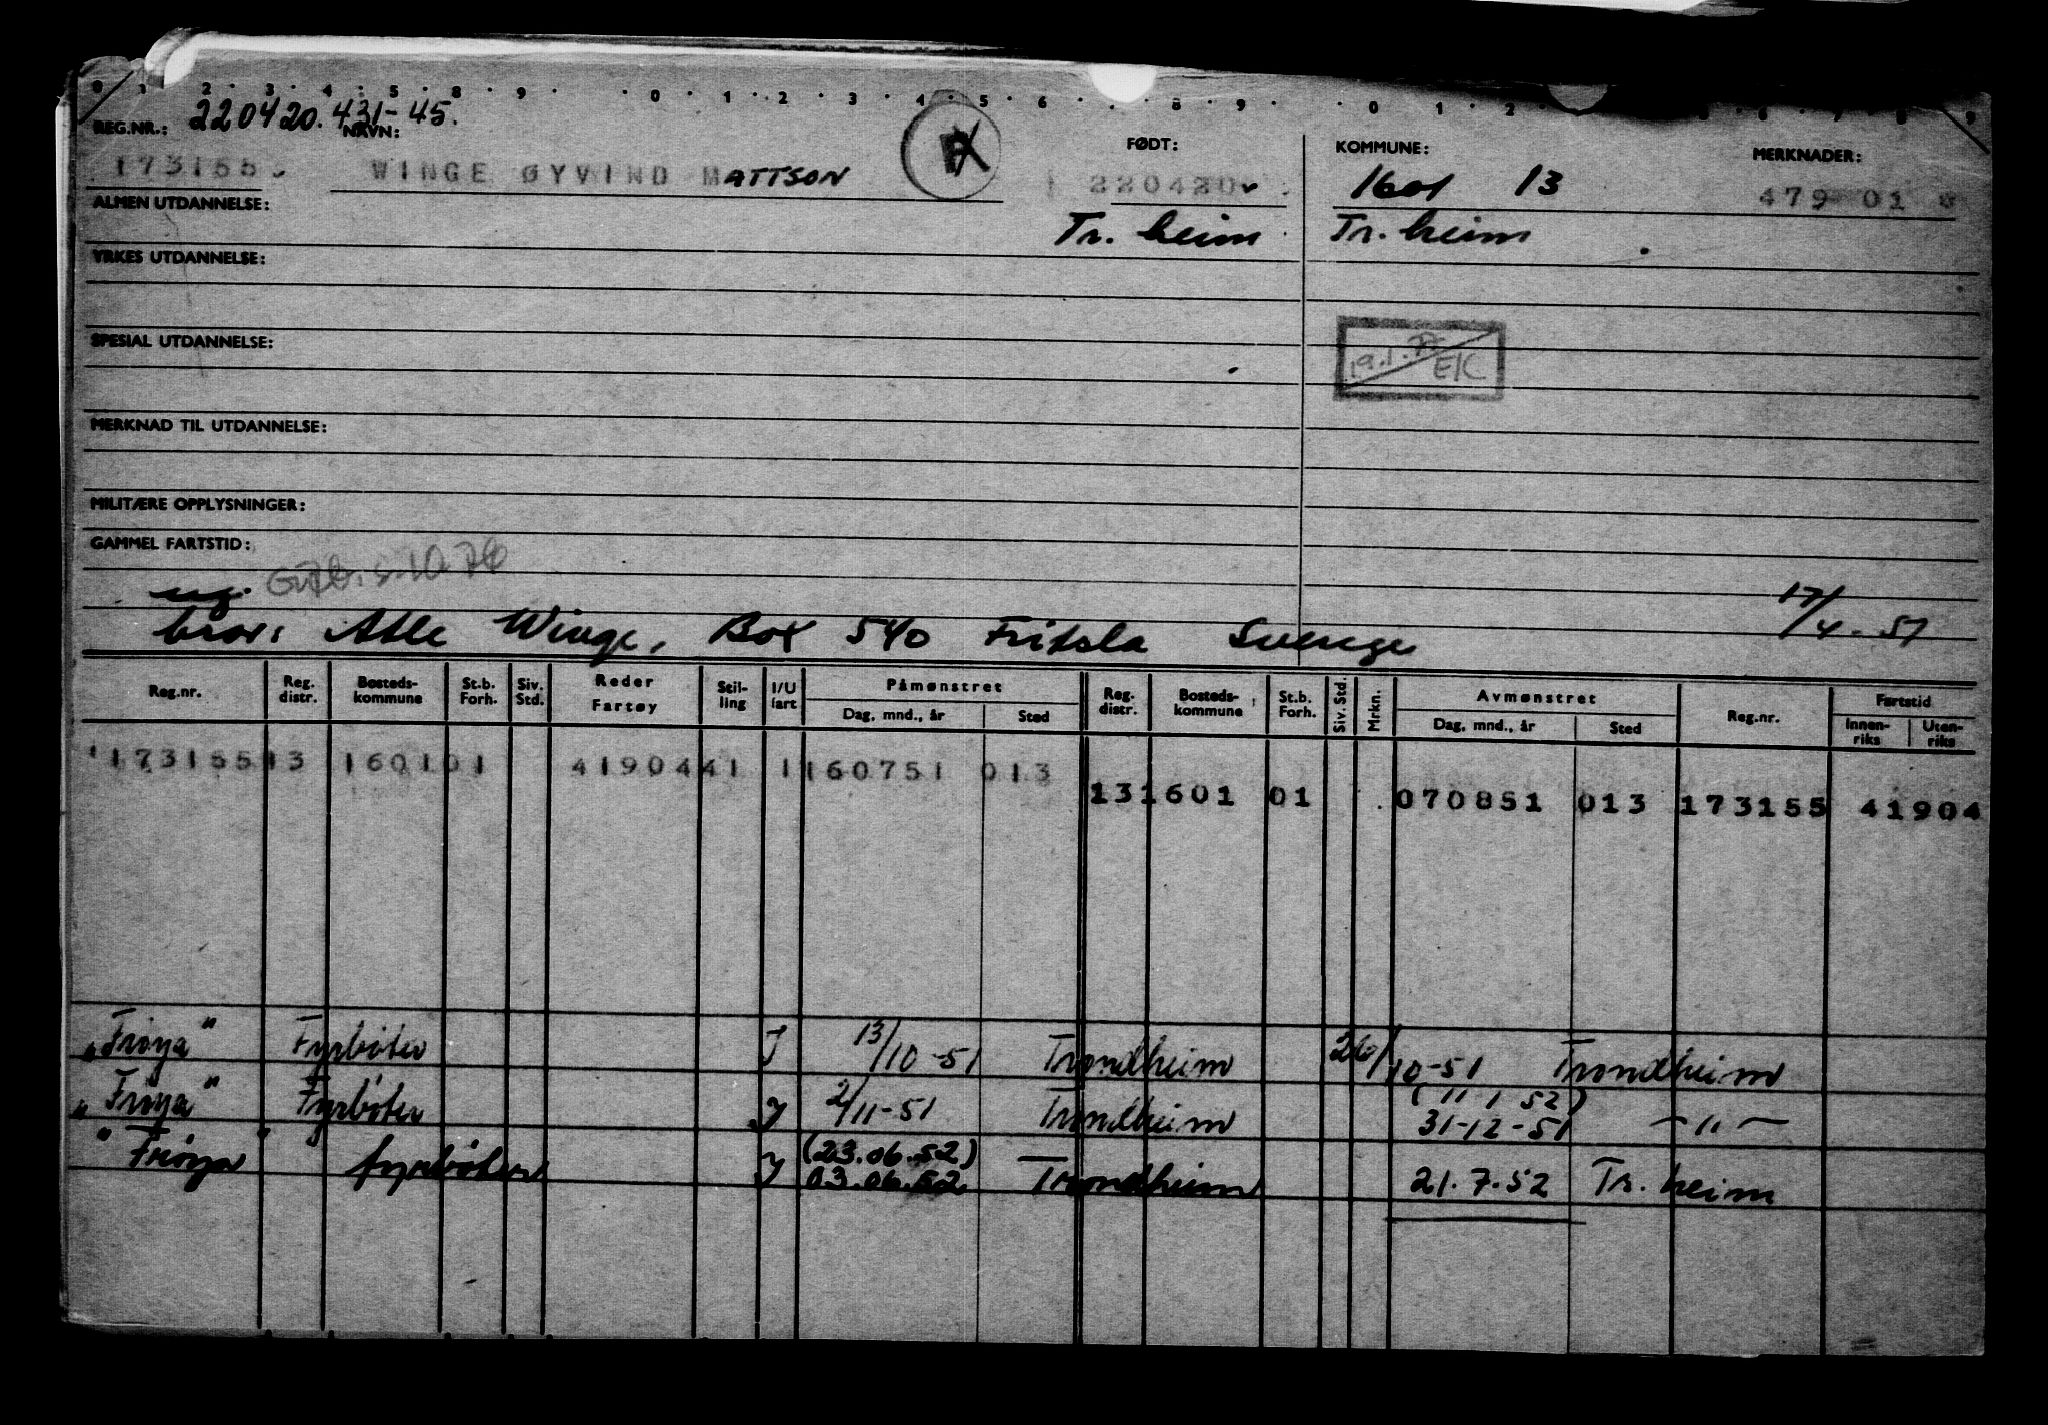 0 1 2 3 4 5 8 9 0 1 2 3 4 5 6 8 9 0 1 2 5 6 7 8 9
220420.431-45.
REG.NR.: NAVN: FØDT: KOMMUNE: MERKNADER:
173155 WINGE ØYVIND MATTSON 220420 1601 13 479 01
ALMEN UTDANNELSE: Tr. heim Tr. heim
YRKES UTDANNELSE:
SPESIAL UTDANNELSE:
19.1. E/C
MERKNAD TIL UTDANNELSE:
MILITÆRE OPPLYSNINGER:
GAMMEL FARTSTID:
ug.
bror: Atle Winge, Box 540 Fritsla Sverige 17/4-51
Reg.nr. Reg. distr. Bosteds-kommune St.b. Forh. Siv. Std. Reder Fartøy Stil-ling I/U fart Påmønstret Dag, mnd., år Sted Reg. distr. Bosteds-kommune St.b. Forh. Siv. Std. Mrkn. Avmønstret Dag, mnd., år Sted Reg.nr. Fartstid Innen-riks Uten-riks
173155 13 1601 01 41904 41 1 160751 013
13 1601 01 070851 013 173155 41904
"Frøya" Fyrbøter I 13/10-51 Trondheim 26/10-51 Trondheim
(11 1 52)
"Frøya" Fyrbøter I 2/11-51 Trondheim 31-12-51 -"-
(23.06.52)
"Frøya" fyrbøter I 03.06.52 Trondheim 21.7.52 Tr. heim